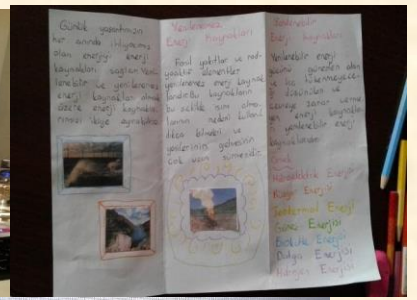 Günlük yaşantımızın
her anında ihtiyacımız
olan enerjiyi enerji
kaynakları sağlar. Yeni-
lenebilir ve yenilenemez
enerji kaynakları olmak
üzere enerji kaynakla-
rımızı ikiye ayırabiliriz.
Yenilenemez
Enerji Kaynakları
Fosil yakıtlar ve rad-
yoaktif elementler
yenilenemez enerji kaynak
larıdır. Bu kaynakların
nedeni
bilmeli ve
yenilerinin gelmesinin
çok uzun
Yenilenebilir
Enerji kaynakları
Yenilenebilir enerji
gücünü güneşten alan
ve hiç tükenmeyecek
düşünülen ve
çevreye zarar verme
yen enerji kaynakla
rı yenilenebilir enerji
kaynaklarıdır.
Örnek
Hidroelektrik Enerjisi
Rüzgar Enerjisi
Jeotermal Enerji
Güneş Enerjisi
Biokütle Enerjisi
Dalga Enerjisi
Hidrojen Enerjisi